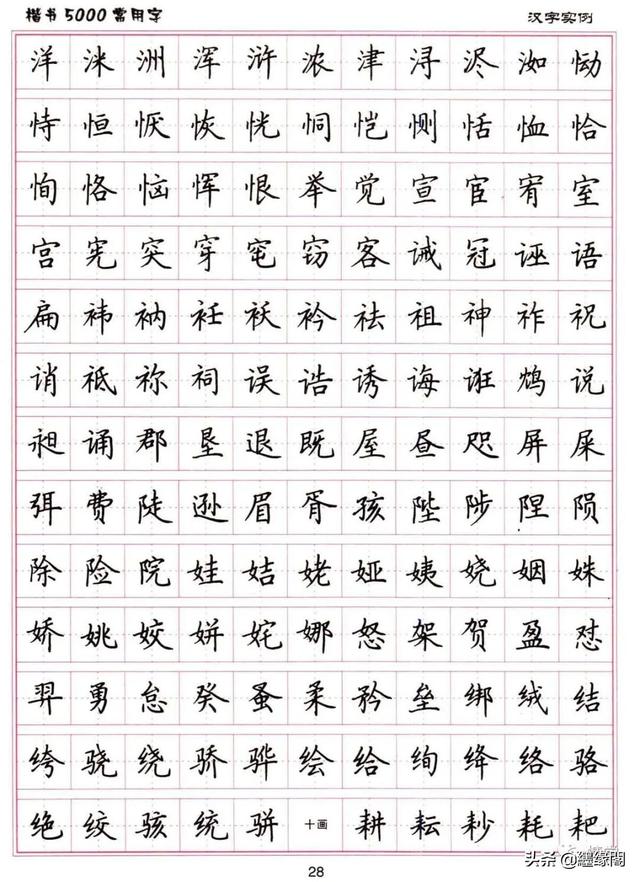 楷书5000常用字 汉字实例
洋 洣 洲 浑 浒 浓 津 浔 浕 洳 恸
恃 恒 恹 恢 恍 恫 恺 恻 恬 恤 恰
恂 恪 恼 恽 恨 举 觉 宣 宦 宥 室
宫 宪 突 穿 窀 窃 客 诫 冠 诬 语
扁 袆 衲 衽 袄 衿 祛 祖 神 祚 祝
诮 祗 祢 祠 误 诰 诱 诲 诳 鸩 说
昶 诵 郡 垦 退 既 屋 昼 咫 屏 屎
弭 费 陡 逊 眉 胥 孩 陛 陟 陧 陨
除 险 院 娃 姞 姥 娅 姨 娆 姻 姝
娇 姚 姣 姘 姹 娜 怒 架 贺 盈 怼
羿 勇 怠 癸 蚤 柔 矜 垒 绑 绒 结
绔 骁 绕 骄 骅 绘 给 绚 绛 络 骆
绝 绞 骇 统 骈 十画 耕 耘 耖 耗 耙
28
头条 @纆缘閣